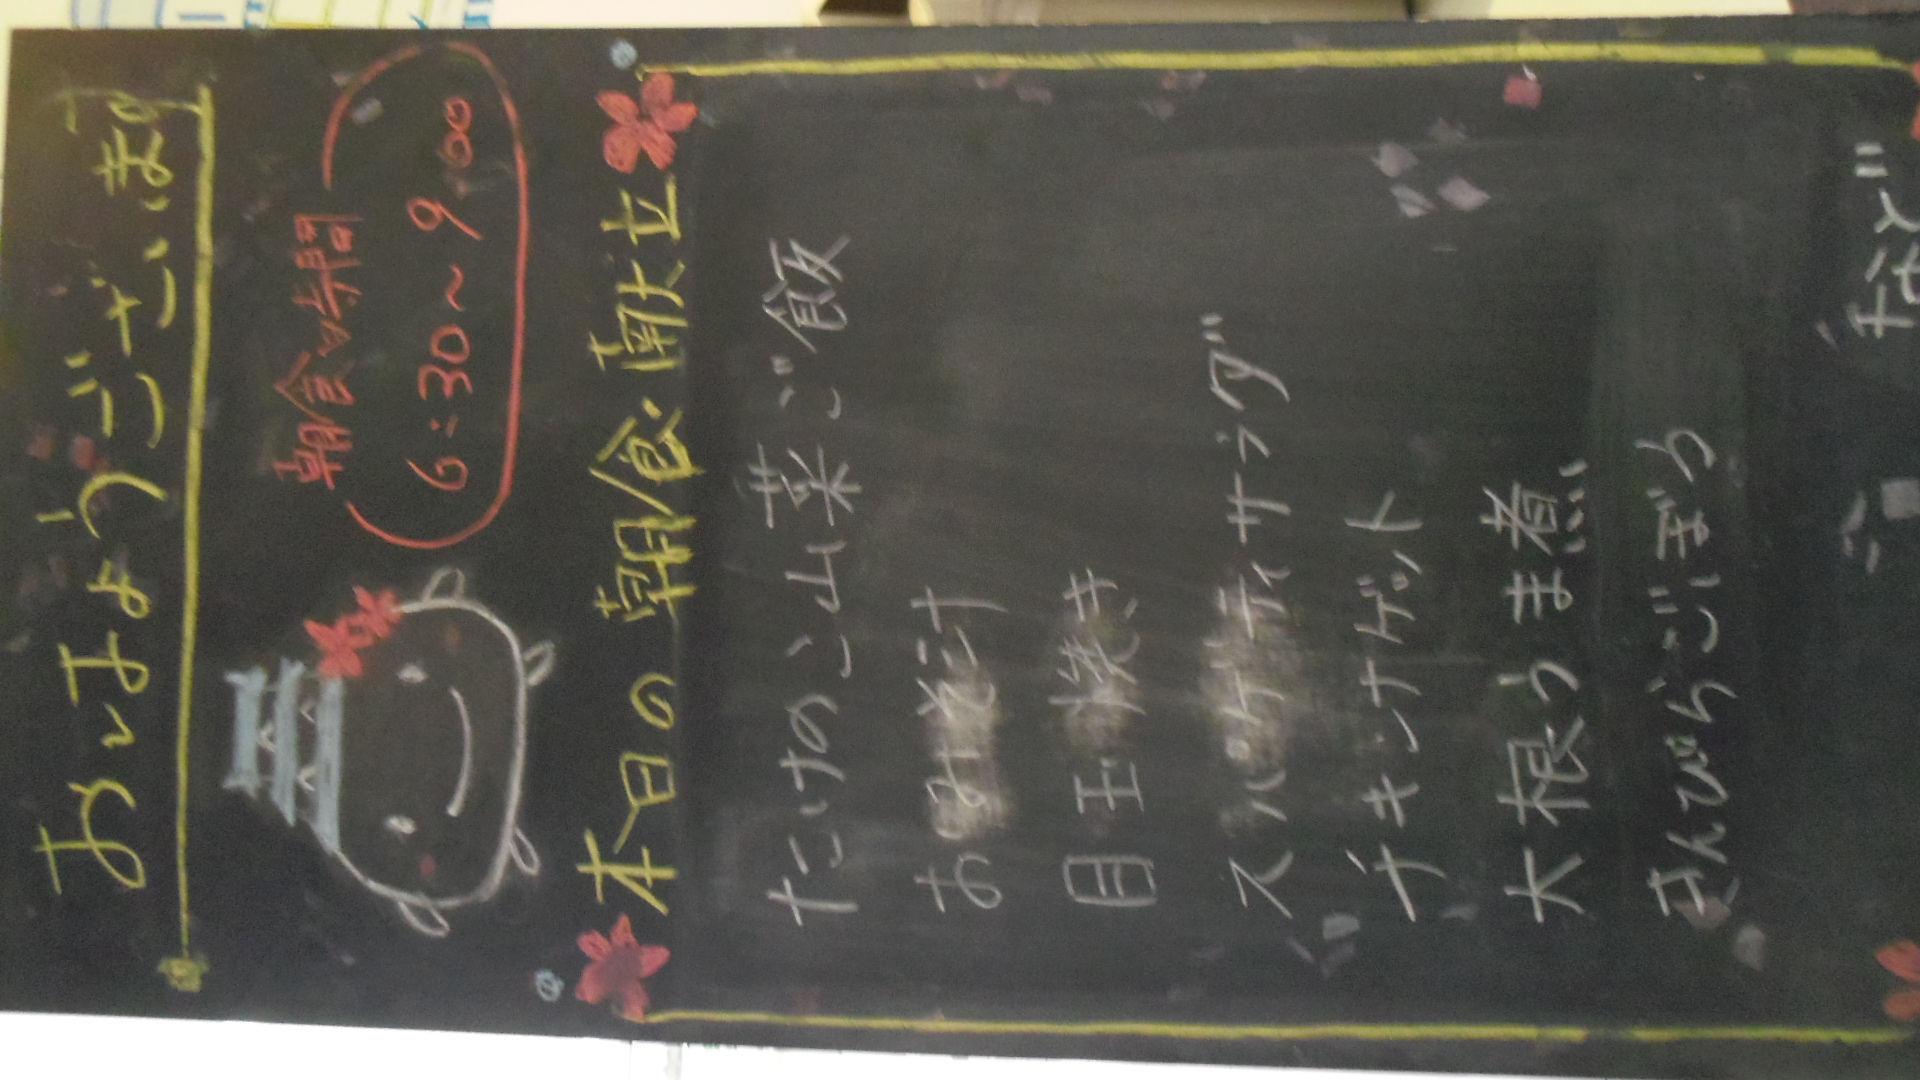 おはようございます
朝食時間
6:30～9:00
本日の朝食献立
たけのこ山菜ご飯
おみそ汁
目玉焼き
スパゲティサラダ
チキンナゲット
大根うま煮
きんぴらごぼう
など